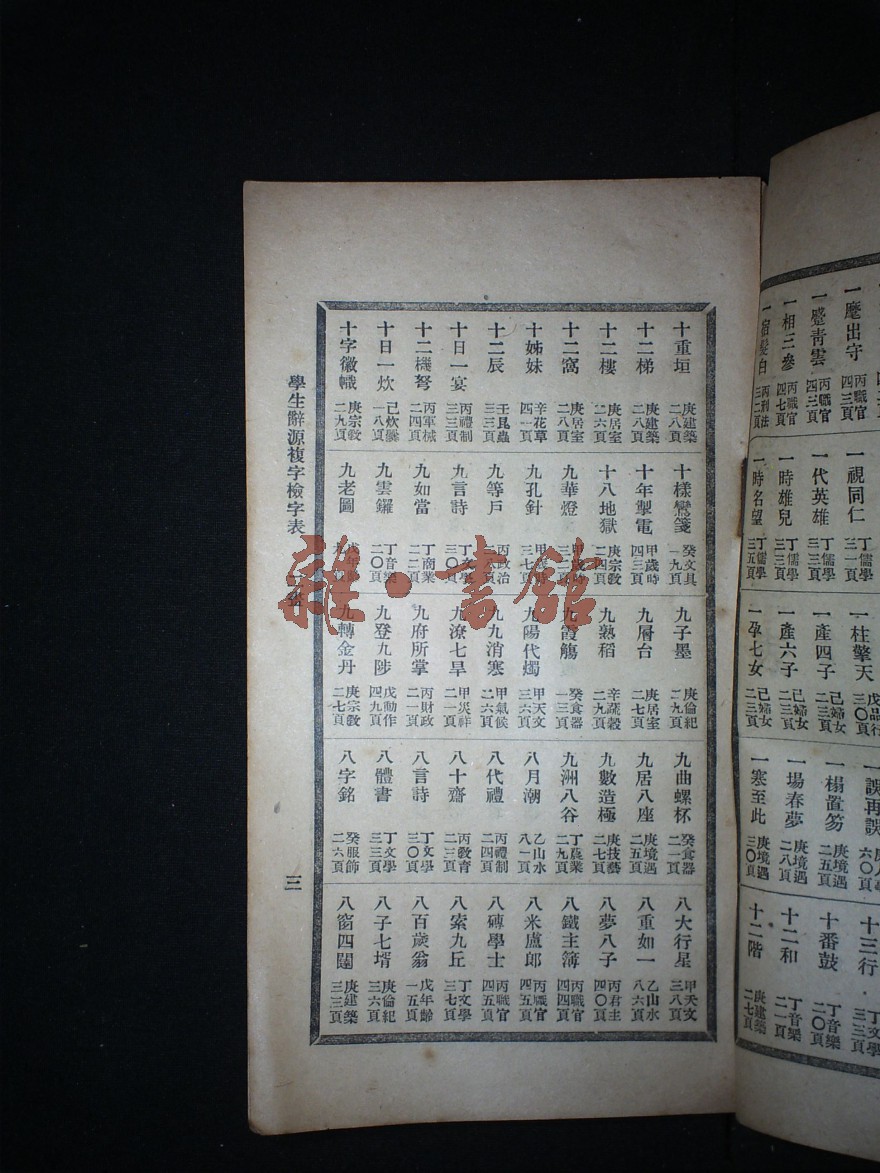 一麾出守 丙職官 四三頁
丙職官 四三頁
一相三參 丙職官 四七頁
一宿髮白 丙刑法 三二頁
一視同仁 丁儒學 三一頁
一代英雄 丁儒學 三三頁
一時雄兒 丁儒學 三三頁
一時名望 丁儒學 三五頁
一柱擎天 戊品行 三〇頁
一產四子 己婦女 二三頁
一產六子 己婦女 二三頁
一孕七女 己婦女 二三頁
一誤再誤 六〇頁
一榻置笏 庚境遇 二五頁
一場春夢 庚境遇 二八頁
一寒至此 庚境遇 三〇頁
十三行 丁文學 三三頁
十番鼓 丁音樂 二〇頁
十二和 丁音樂 二一頁
十二階 庚建築 二七頁
十重垣 庚建築 二八頁
十二梯 庚建築 二八頁
十二樓 庚居室 二六頁
十二窩 庚居室 二八頁
十姊妹 辛花草 四一頁
十二辰 壬昆蟲 三三頁
十日一宴 丙禮制 三三頁
十二機弩 丙軍械 二四頁
十日一炊 己炊 一八頁
十字徽幟 庚宗教 二九頁
十樣鸞箋 癸文具 一九頁
十年掣電 甲歲時 四三頁
十八地獄 庚宗教 二四頁
九華燈 甲歲時 三二頁
九孔針 甲歲時 三七頁
九等戶 丙政治 二六頁
九言詩 丁文學 三〇頁
九如當 丁商業 二二頁
九雲鑼 丁音樂 二〇頁
九老圖 戊年齡
九子墨 庚倫紀 二九頁
九層台 庚居室 二七頁
九熟稻 辛蔬穀 二九頁
九霞觴 癸食器 一三頁
九陽代燭 甲天文 三六頁
九九消寒 甲氣候 二六頁
九潦七旱 甲災祥 二一頁
九府所掌 丙財政 二一頁
九登九陟 戊動作 四九頁
九轉金丹 庚宗教 二七頁
九曲螺杯 癸食器 二一頁
九居八座 庚境遇 二五頁
九數造極 庚技藝 二七頁
九洲八谷 丁農業 二九頁
八月潮 乙山水 八一頁
八代禮 丙禮制 二四頁
八十齋 丙教育 二三頁
八言詩 丁文學 三〇頁
八體書 丁文學 三三頁
八字銘 癸服飾 二六頁
八大行星 甲天文 三八頁
八重如一 乙山水 八六頁
八夢八子 丙君主 四〇頁
八鐵主簿 丙職官 四四頁
八米盧郎 丙職官 四五頁
八磚學士 丙職官 四五頁
八索九丘 丁文學 三七頁
八百歲翁 戊年齡 一五頁
八子七壻 庚倫紀 三六頁
八窗四闥 庚建築 三三頁
學生辭源複字檢字表
三
雜·書館